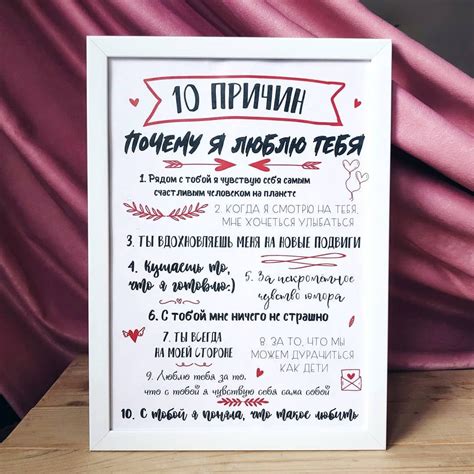 10 ПРИЧИН
ПОЧЕМУ Я ЛЮБЛЮ ТЕБЯ
1. Рядом с тобой я чувствую себя самым
счастливым человеком на планете
2. КОГДА Я СМОТРЮ НА ТЕБЯ,
МНЕ ХОЧЕТЬСЯ УЛЫБАТЬСЯ
3. ТЫ ВДОХНОВЛЯЕШЬ МЕНЯ НА НОВЫЕ ПОДВИГИ
4. Кушаешь то,
что я готовлю:)
5. За искрометное
чувство юмора
6. С ТОБОЙ МНЕ НИЧЕГО НЕ СТРАШНО
7. ТЫ ВСЕГДА
НА МОЕЙ СТОРОНЕ
8. ЗА ТО, ЧТО МЫ
МОЖЕМ ДУРАЧИТЬСЯ
КАК ДЕТИ
9. Люблю тебя за то,
что с тобой я чувствую себя сама собой
10. С тобой я поняла, что такое любить